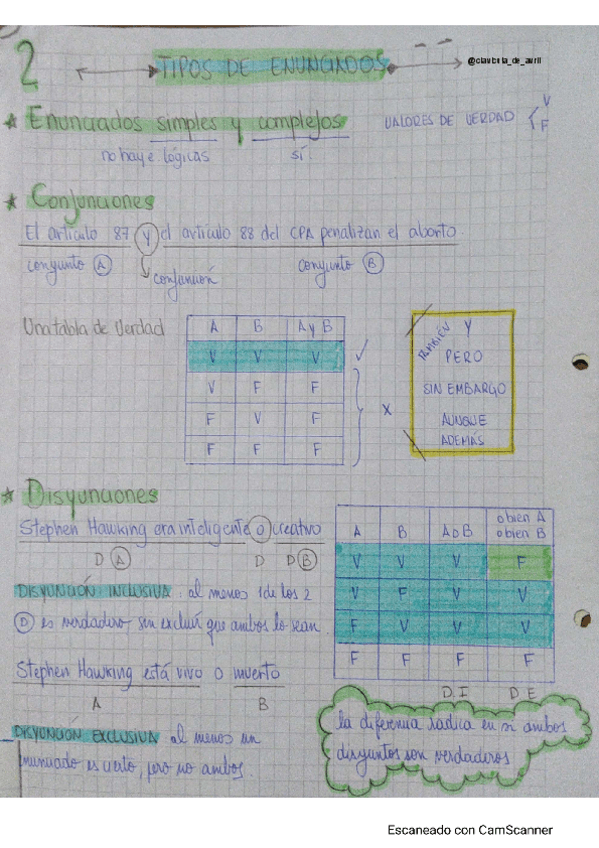 2
TIPOS DE ENUNCIADOS
@claubela_de_auril
★ Enunciados simples y complejos
VALORES DE VERDAD V
F
no hay e. lógicas
sí
★ Conjunciones
El artículo 87 y el artículo 88 del CPA penalizan el aborto
conjunto A
conjunción
conjunto B
Una tabla de Verdad
A B A y B
V V V ✓
V F F
F V F
F F F
X
TAMBIÉN Y
PERO
SIN EMBARGO
AUNQUE
ADEMÁS
★ Disyunciones
Stephen Hawking era inteligente o creativo
D A D D B
DISYUNCIÓN INCLUSIVA: al menos 1 de los 2
D es verdadero, sin excluir que ambos lo sean
Stephen Hawking está vivo o muerto
A B
DISYUNCIÓN EXCLUSIVA al menos un
enunciado es cierto, pero no ambos.
A B A o B o bien A
o bien B
V V V F
V F V V
F V V V
F F F F
D.I D E
la diferencia radica en si ambos
disyuntos son verdaderos
Escaneado con CamScanner